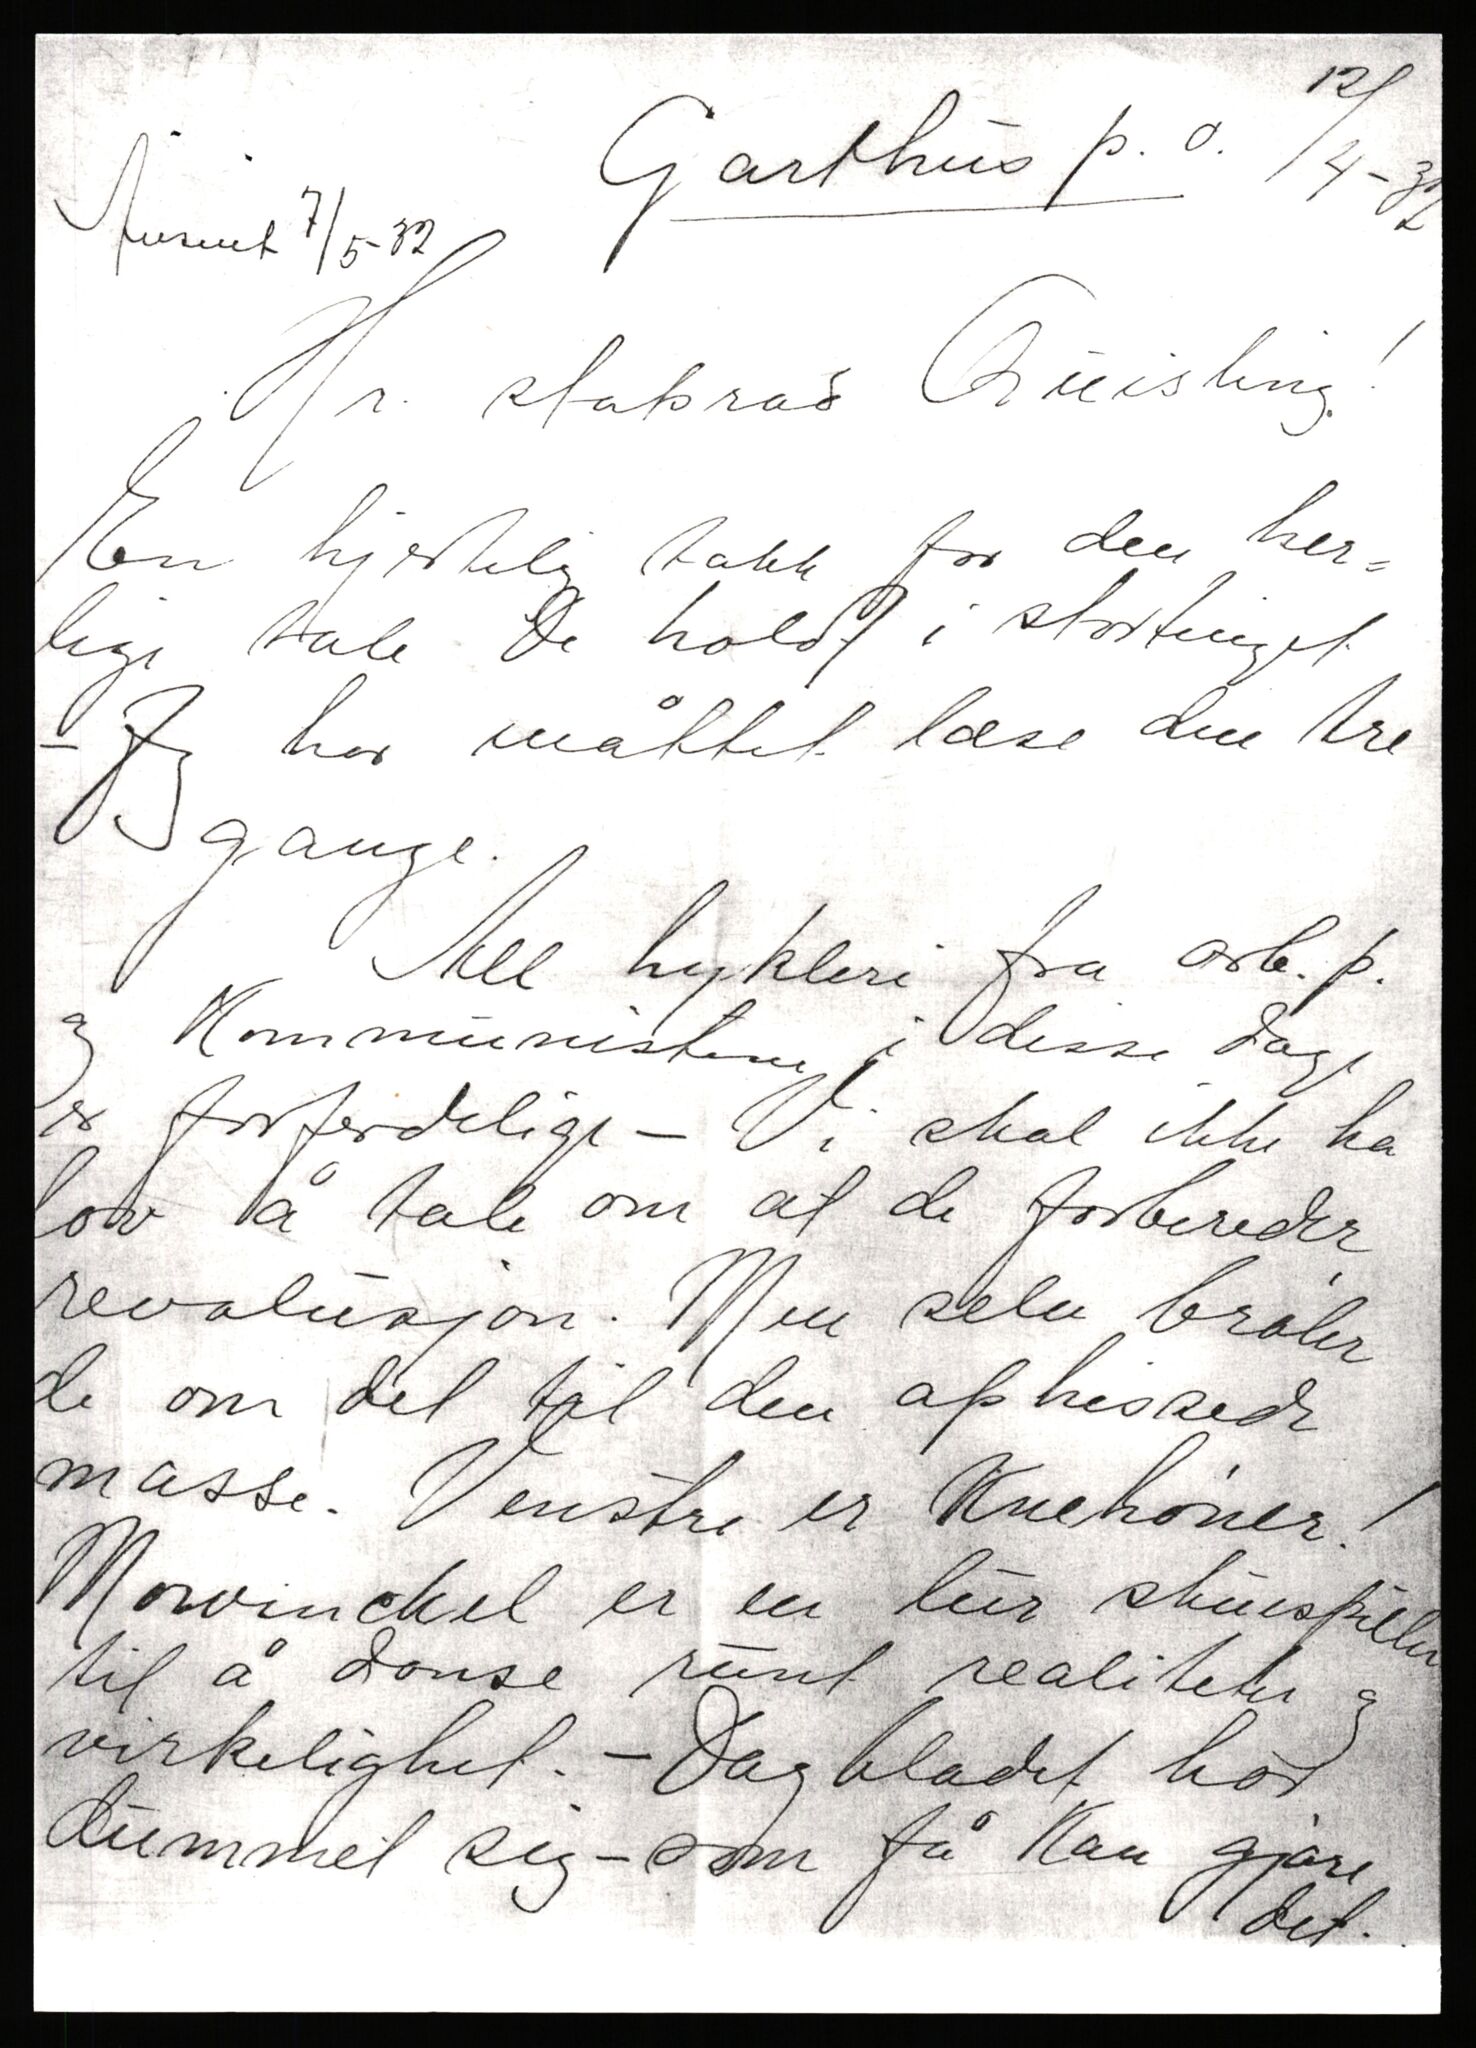 Garthus p. o. 12/4-32
7/5-32
Hr. statsråd Quisling!
En hjertelig takk for den her=
lige tale De holdt i stortinget
- Jeg har måttet læse den tre
gange.
All hykleri fra arb. p.
og Kommunistene i disse dage
er forferdelige - Vi skal ikke ha
lov å tale om at de forbereder
revolusjon. Men selv bråler
de om det til den ophissede
masse. Venstre er Knehöner!
Mowinckel er en lur skuespiller
til å danse rundt realiteter og
virkelighet. - Dagbladet har
dummet sig - som få kan gjøre
det.